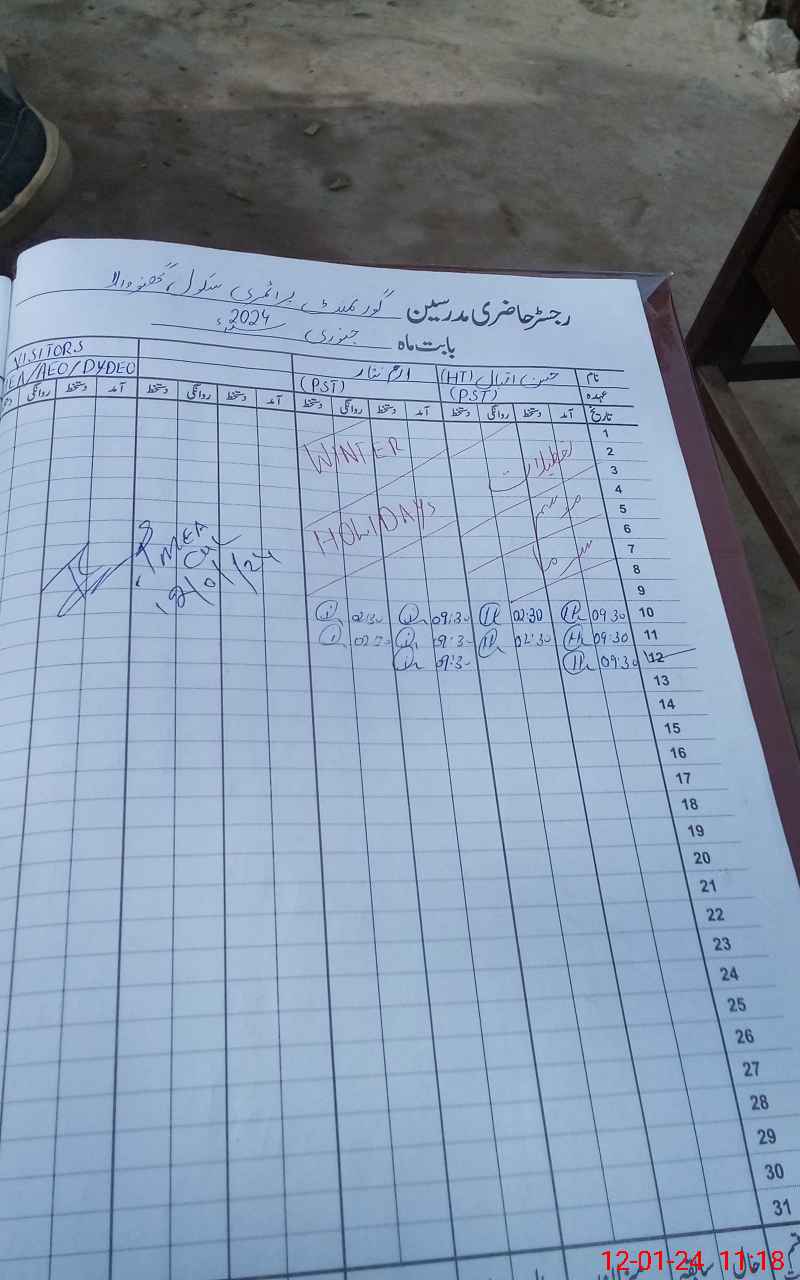 رجسٹر حاضری مدرسین گورنمنٹ پرائمری سکول
بابت ماہ جنوری 2024ء
نام (HT) حسن اقبال ارم نثار VISITORS
عہدہ (PST) (PST) MEA/AEO/DYDEO
تاریخ آمد دستخط روانگی دستخط آمد دستخط روانگی دستخط آمد دستخط روانگی دستخط آمد دستخط روانگی
1
2 تعطیلات WINTER
3
4
5 موسم HOLIDAYS
6
7 سرما
8
9
10 09:30 02:30 09:30 02:30
11 09:30 02:30 09:30 02:30
12 09:30 09:30
MEA
12/01/24
13
14
15
16
17
18
19
20
21
22
23
24
25
26
27
28
29
30
31
سابقہ
12-01-24 11:18